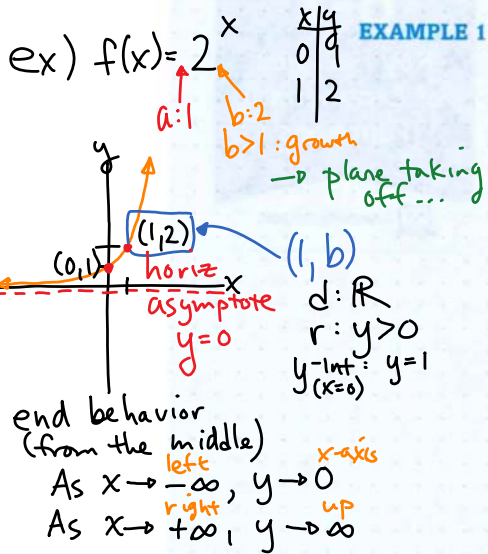 EXAMPLE 1
ex) f(x)=2^x
x | y
0
1 | 2
a:1
b:2
b>1: growth
→ plane taking
off...
y
(1,2)
(0,1)
(1, b)
x
horiz
asymptote
y=0
d: ℝ
r: y>0
y-int: y=1
(x=0)
end behavior
(from the middle)
left
x-axis
As x→ -∞, y→0
right
up
As x→ +∞, y→∞